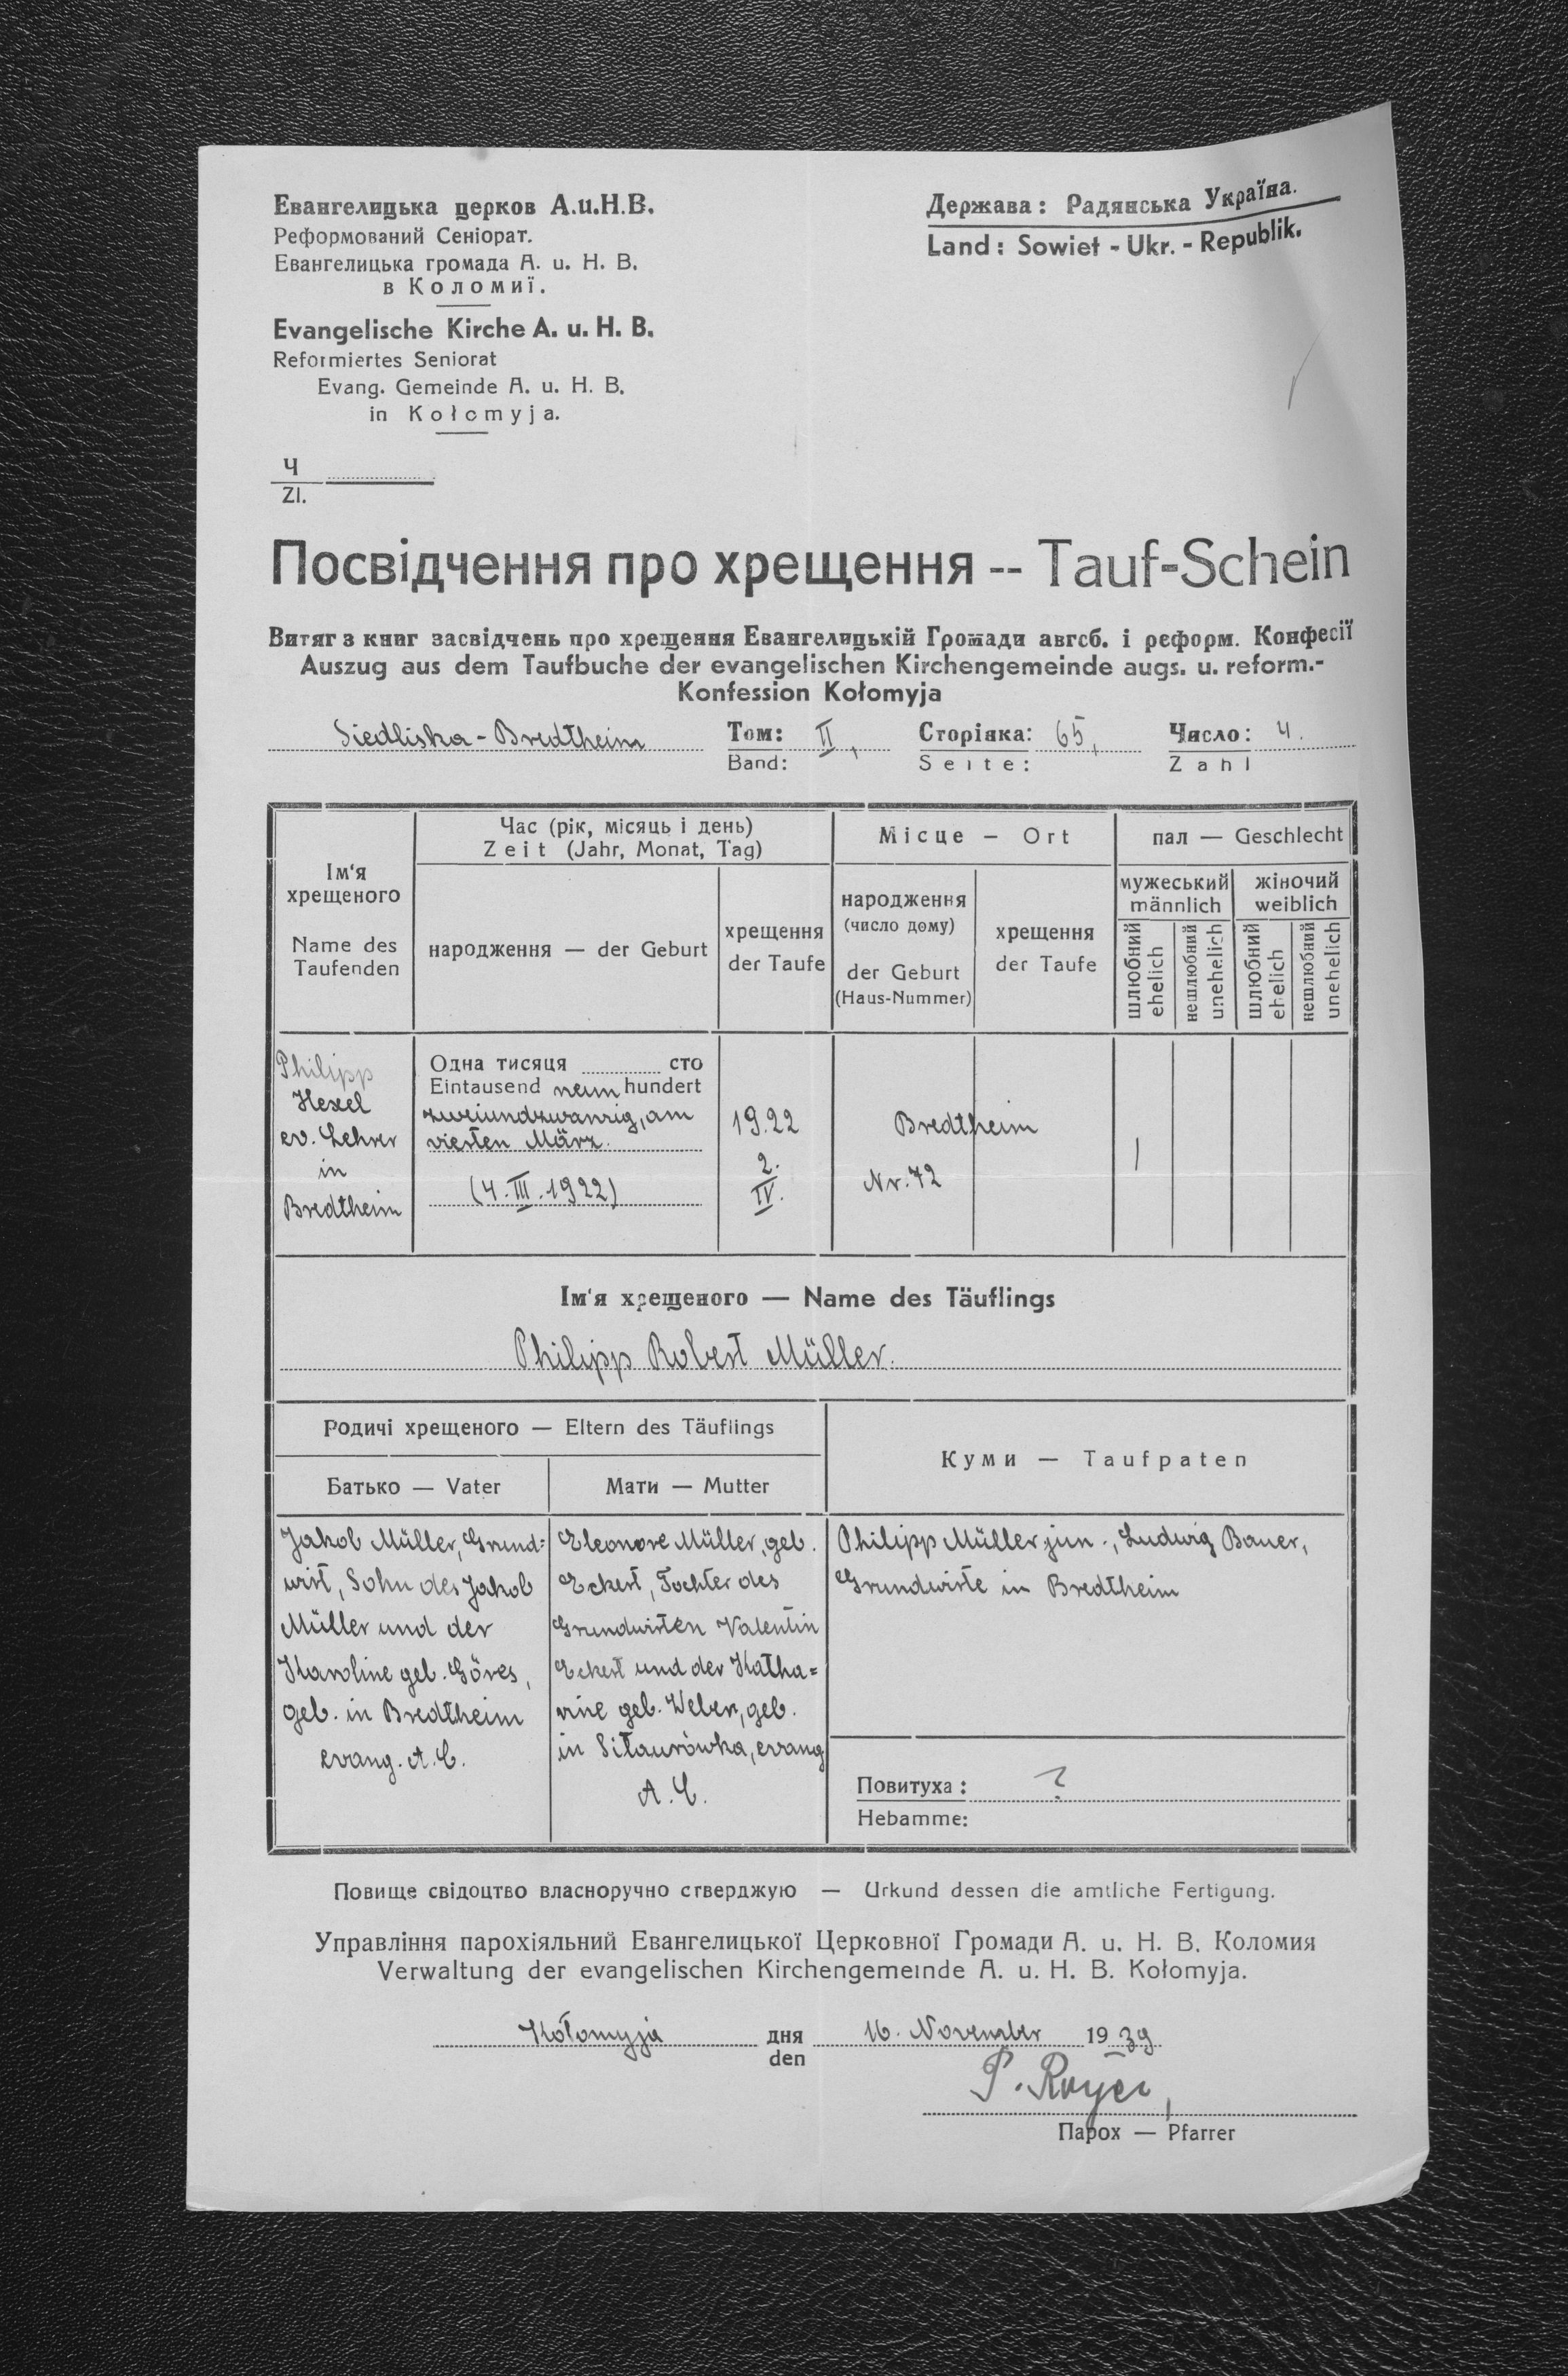 Евангелицька церков A.u.H.B.
Реформований Сеніорат.
Евангелицька громада A. u. H. B.
в Коломиї.
Evangelische Kirche A. u. H. B.
Reformiertes Seniorat
Evang. Gemeinde A. u. H. B.
in Kołomyja.
Держава: Радянська Україна.
Land: Sowiet - Ukr. - Republik.
Ч
Zl.
Посвідчення про хрещення -- Tauf-Schein
Витяг з книг засвідчень про хрещення Евангелицькій Громади авгсб. і реформ. Конфесії
Auszug aus dem Taufbuche der evangelischen Kirchengemeinde augs. u. reform.-
Konfession Kołomyja
Siedliska - Bredtheim Том: II, Сторінка: 65, Число: 4.
Band: Seite: Zahl
Час (рік, місяць і день)
Zeit (Jahr, Monat, Tag)
Місце — Ort
пал — Geschlecht
Ім'я
хрещеного
Name des
Taufenden
народження — der Geburt
хрещення
der Taufe
народження
(число дому)
der Geburt
(Haus-Nummer)
хрещення
der Taufe
мужеський
männlich
жіночий
weiblich
шлюбний
ehelich
нешлюбний
unehelich
шлюбний
ehelich
нешлюбний
unehelich
Philipp
Hexel
ev. Lehrer
in
Bredtheim
Одна тисяця сто
Eintausend neun hundert
zweiundzwanzig, am
vierten März.
(4. III. 1922)
1922
2.
IV.
Bredtheim
Nr. 72
Ім'я хрещеного — Name des Täuflings
Philipp Robert Müller.
Родичі хрещеного — Eltern des Täuflings
Куми — Taufpaten
Батько — Vater
Мати — Mutter
Jakob Müller, Grund=
wirt, Sohn des Jakob
Müller und der
Karoline geb. Göres,
geb. in Bredtheim
evang. A. C.
Eleonore Müller, geb.
Eckert, Tochter des
Grundwirten Valentin
Eckert und der Katha=
rine geb. Weber, geb.
in Sitaurówka, evang
A. C.
Philipp Müller jun., Ludwig Bauer,
Grundwirte in Bredtheim
Повитуха: ?
Hebamme:
Повище свідоцтво власноручно стверджую — Urkund dessen die amtliche Fertigung.
Управління парохіяльний Евангелицької Церковної Громади A. u. H. B. Коломия
Verwaltung der evangelischen Kirchengemeinde A. u. H. B. Kołomyja.
Kołomyja дня 16. November 1939
den
P. Royer,
Парох — Pfarrer